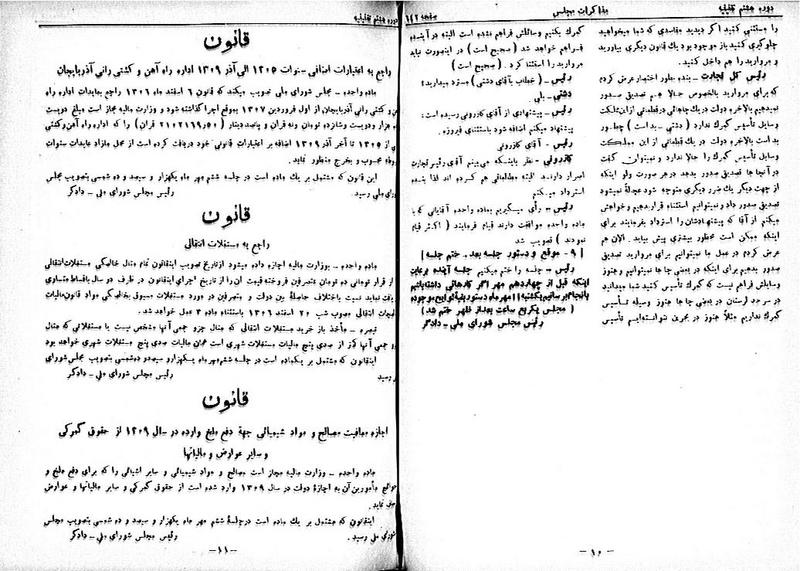 دوره هشتم تقنینیه
مذاکرات مجلس
صفحه ۱۴۲
را مستثنی کنید اگر دیدید مفاسدی که شما میخواهید
جلوگیری کنید باز موجود بود یک قانون دیگری بیاورید
و مروارید را هم داخل کنید.
رئیس کل تجارت - بنده بطور اختصار عرض کردم
که برای مروارید بالخصوص حالا هم تصدیق صدور
نمیدهیم بالاخره دولت در یک جاهائی در قطعاتی از این مملکت
وسایل تأسیس گمرک ندارد (دشتی - بد است) چطور
بد است بالاخره دولت در یک قطعاتی از این مملکت
وسایل تأسیس گمرک را حالا ندارد و نمیتوان گفت
در آنجا ها تصدیق صدور بدهد در هر صورت ولو اینکه
از جهت دیگر یک ضرر دیگری متوجه شود عجالة نمیشود
تصدیق صدور داد و نمیتوانیم استثناء قرار دهیم و خواهش
میکنم از آقا که پیشنهادشان را استرداد بفرمایند برای
اینکه ممکن است محظور بیشتری پیش بیاید. الان هم
عرض کردم در عمل ما نمیتوانیم برای مروارید تصدیق
صدور بدهیم برای اینکه در بعضی جا ها نمیتوانیم و هنوز
وسایلش فراهم نیست که گمرک تأسیس کنید شما میدانید
در سرحد لرستان در بعضی جا ها هنوز وسیله تأسیس
گمرک نداریم مثلا هنوز در بحرین نتوانسته‌ایم تأسیس
گمرک بکنیم وسائلش فراهم نشده است البته در آینده
فراهم خواهد شد (صحیح است) در اینصورت نباید
مروارید را استثنا کرد. (صحیح است)
رئیس - (خطاب بآقای دشتی) مسترد میدارید؟
دشتی - بلی
رئیس - پیشنهادی از آقای کازرونی رسیده است:
پیشنهاد میکنم اضافه شود باستثنای فیروزه.
کازرونی - نظر باینکه می‌بینم آقای رئیس تجارت
اصرار دارند البته مطالعاتی هم کرده اند لذا بنده
استرداد میکنم
رئیس - رأی میگیریم بماده واحده آقایانی که با
ماده واحده موافقت دارند قیام فرمایند (اکثر قیام
نمودند) تصویب شد
[۹ - موقع و دستور جلسه بعد - ختم جلسه]
رئیس - جلسه را ختم میکنیم جلسه آینده برعایت
اینکه قبل از چهاردهم مهر اگر کارهائی داشته‌باشیم
(مجلس یکربع ساعت بعد از ظهر ختم شد)
رئیس مجلس شورای ملی - دادگر
- ۱۰ -
دوره هشتم تقنینیه
قانون
راجع به اعتبارات اضافی سنوات ۱۳۰۵ الی آذر ۱۳۰۹ اداره راه آهن و کشتی رانی آذربایجان
ماده واحده - مجلس شورای ملی تصویب میکند که قانون ۶ اسفند ماه ۱۳۰۶ راجع بعایدات اداره راه
آهن و کشتی رانی آذربایجان از اول فروردین ۱۳۰۷ بموقع اجرا گذاشته شود و وزارت مالیه مجاز است مبلغ دویست
ده هزار و دویست و شانزده تومان ونه قران و پانصد دینار (۲۱۰۲۱۶۹٫۵۰ قران) را که اداره راه آهن و کشتی
از ۱۳۰۵ تا آخر آذر ۱۳۰۹ اضافه بر اعتبارات قانونی خود دریافت کرده است از محل مازاد عایدات سنوات
محسوب و بخرج منظور نماید.
این قانون که مشتمل بر یک ماده است در جلسه ششم مهر ماه یکهزار و سیصد و ده شمسی بتصویب مجلس
شورای ملی رسید.
رئیس مجلس شورای ملی - دادگر
قانون
راجع به مستغلات انتقالی
ماده واحده - بوزارت مالیه اجازه داده میشود از تاریخ تصویب اینقانون تمام منال خالصگی مستغلات انتقالی
از قرار تومانی ده تومان بمتصرفین فروخته قیمت آن را از تاریخ اجرای اینقانون در ظرف دو سال باقساط متساوی
دریافت نماید نسبت باختلاف حاصله بین دولت و متصرفین در مورد مستغلات مسبوق بخالصگی مواد قانون مالیات
مصوب شب ۲۰ اسفند ۱۳۰۶ باستثناء ماده ۳ عمل خواهد شد.
تبصره - مأخذ باز خرید مستغلات انتقالی که منال جزو جمعی آنها مشخص نیست یا مستغلاتی که منال
جزو جمعی آنها کمتر از صدی پنج مالیات مستغلات شهری است همان مالیات صدی پنج مستغلات شهری خواهد بود
اینقانون که مشتمل بر یکماده است در جلسه ششم مهر ماه یکهزار و سیصد و ده شمسی بتصویب مجلس شورای
ملی رسید
رئیس مجلس شورای ملی - دادگر
قانون
اجازه معافیت مصالح و مواد شیمیائی جهة دفع ملخ وارده در سال ۱۳۰۹ از حقوق گمرکی
و سایر عوارض و مالیاتها
ماده واحده - وزارت مالیه مجاز است مصالح و مواد شیمیائی و سایر اشیائی را که برای دفع ملخ و
حوائج مأمورین آن به اجازهٔ دولت در سال ۱۳۰۹ وارد شده است از حقوق گمرکی و سایر مالیاتها و عوارض
معاف نماید.
اینقانون که مشتمل بر یک ماده است در جلسهٔ ششم مهر ماه یکهزار و سیصد و ده شمسی بتصویب مجلس
شورای ملی رسید.
رئیس مجلس شورای ملی - دادگر
- ۱۱ -